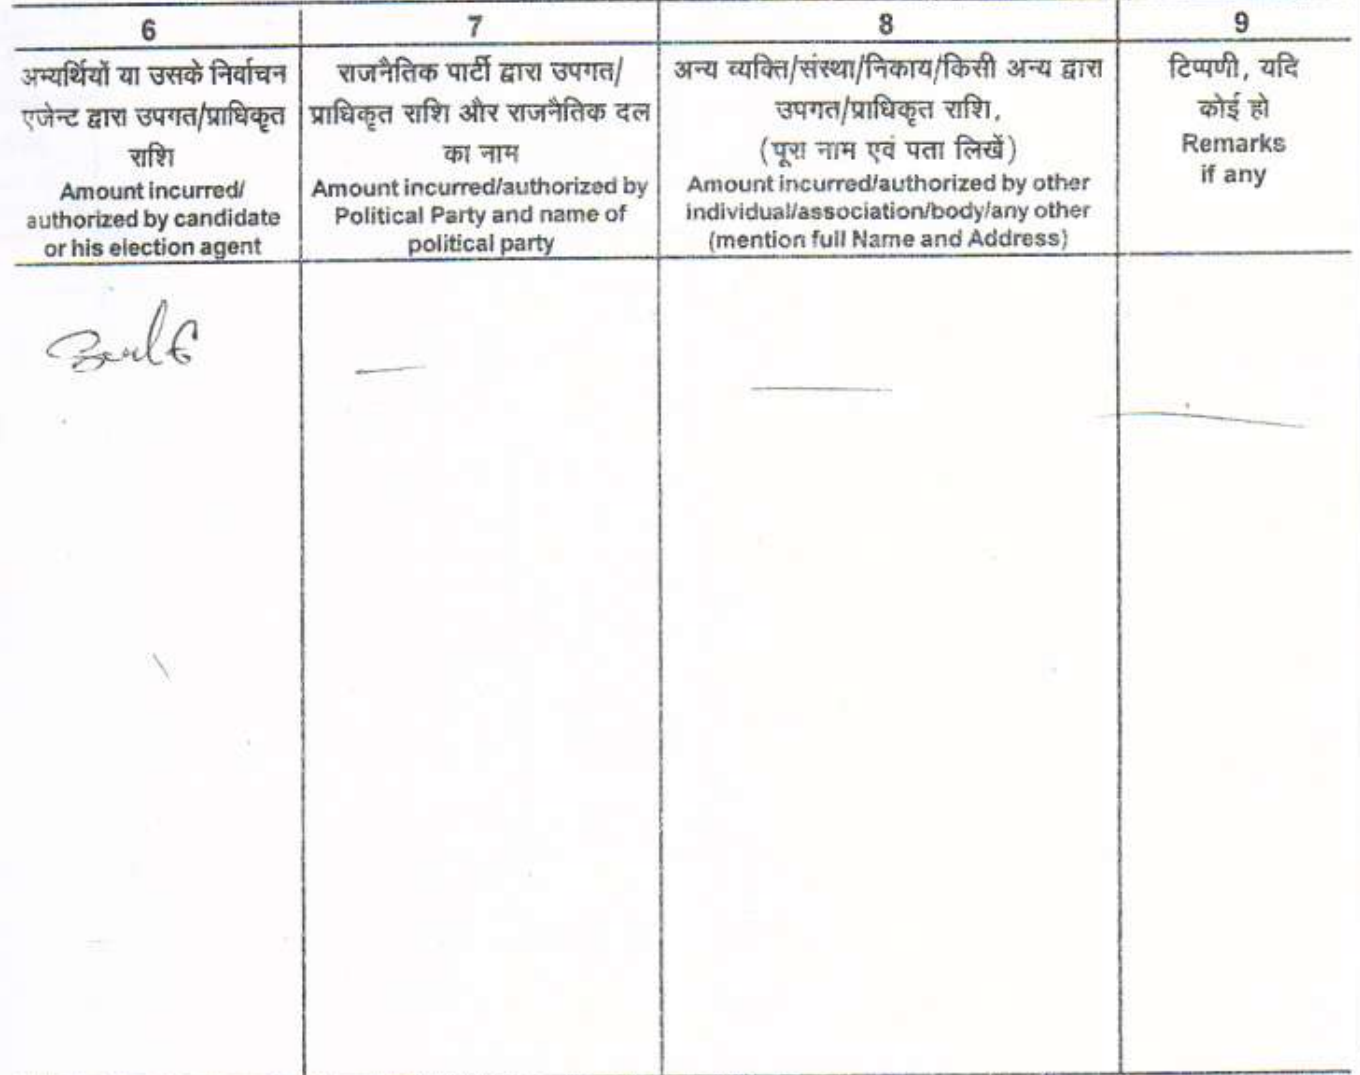 6
अभ्यर्थियों या उसके निर्वाचन
एजेन्ट द्वारा उपगत/प्राधिकृत
राशि
Amount incurred/
authorized by candidate
or his election agent
7
राजनैतिक पार्टी द्वारा उपगत/
प्राधिकृत राशि और राजनैतिक दल
का नाम
Amount incurred/authorized by
Political Party and name of
political party
8
अन्य व्यक्ति/संस्था/निकाय/किसी अन्य द्वारा
उपगत/प्राधिकृत राशि,
(पूरा नाम एवं पता लिखें)
Amount incurred/authorized by other
individual/association/body/any other
(mention full Name and Address)
9
टिप्पणी, यदि
कोई हो
Remarks
if any